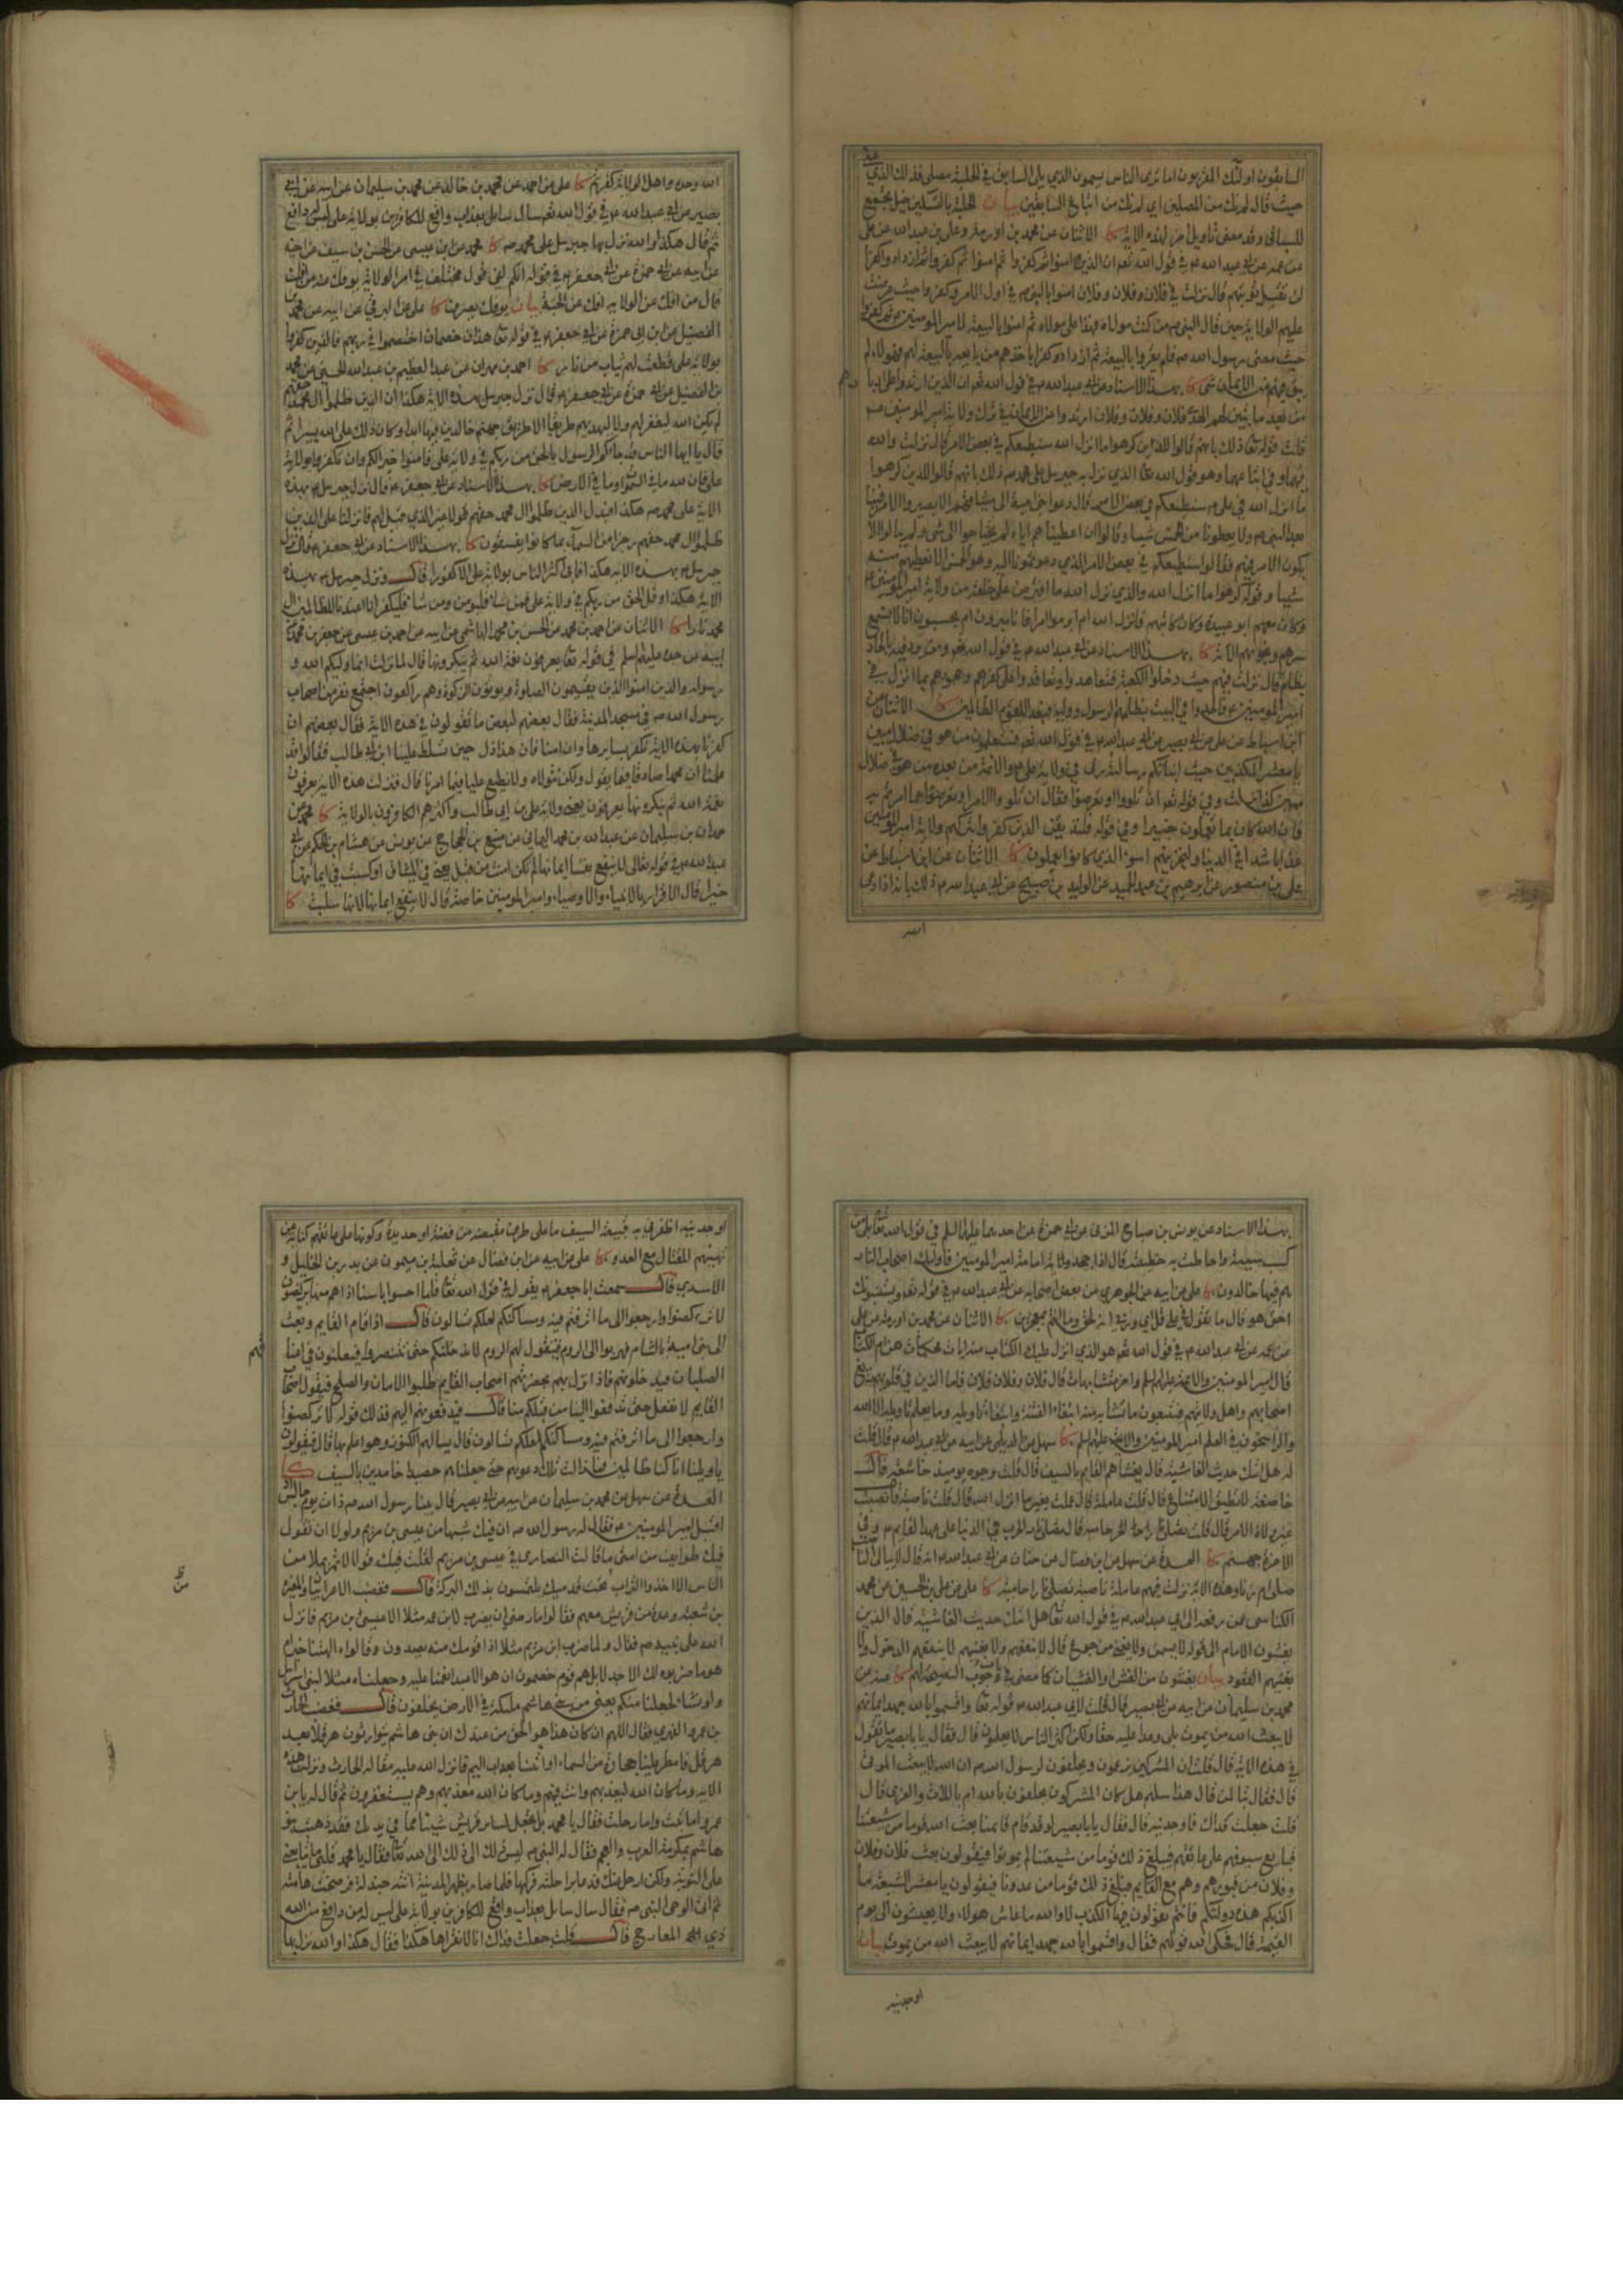 السابقون اولئك المقربون اما ترى الناس يسمون الذي يلي السابق في الحلبة مصلى فذلك الذي
حيث قال لم نك من المصلين اي لم نك من اتباع السابقين بيان الحلبة بالتسكين خيل تجمع
للسباق وقد مضى تاويل اخر لهذه الاية كا الاثنان عن محمد بن اورمة وعلي بن عبدالله عن علي
عن عمه عن ابي عبدالله ع في قول الله تعم ان الذين امنوا ثم كفروا ثم امنوا ثم كفروا ثم ازدادوا كفرا
لن تقبل توبتهم قال نزلت في فلان وفلان وفلان امنوا بالنبي ص في اول الامر وكفروا حيث عرضت
عليهم الولاية حين قال النبي ص من كنت مولاه فهذا علي مولاه ثم امنوا بالبيعة لامير المومنين ع ثم كفروا
حيث مضى رسول الله ص فلم يقروا بالبيعة ثم ازدادوا كفرا باخذهم من بايعه بالبيعة لهم فهولاء لم
يبق فيهم من الايمان شي كا بهذا الاسناد عن ابي عبدالله ع في قول الله تعم ان الذين ارتدوا على ادبا
من بعد ما تبين لهم الهدى فلان وفلان وفلان ارتدوا عن الايمان في ترك ولاية امير المومنين ع
قلت قوله تعا ذلك بانهم قالوا للذين كرهوا ما انزل الله سنطيعكم في بعض الامر قال نزلت والله
فيهما وفي اتباعهما وهو قول الله عز الذي نزل به جبريل على محمد ص ذلك بانهم قالوا للذين كرهوا
ما انزل الله في علي ع سنطيعكم في بعض الامر قال دعوا بني امية الى ميثاقهم الا يصيروا الامر فينا
بعد النبي ص ولا يعطونا من الخمس شيئا وقالوا ان اعطيناهم اياه لم يحتاجوا الى شي ولم يبالوا الا
يكون الامر فيهم فقالوا سنطيعكم في بعض الامر الذي دعوتمونا اليه وهو الخمس الا نعطيهم منه
شيئا وقوله كرهوا ما انزل الله والذي نزل الله ما افترض على خلقه من ولاية امير المومنين ع
وكان معهم ابو عبيدة وكان كاتبهم فانزل الله ام ابرموا امرا فانا مبرمون ام يحسبون انا لا نسمع
سرهم ونجويهم الاية كا بهذا الاسناد عن ابي عبدالله ع في قول الله تعم ومن يرد فيه بالحاد
بظلم قال نزلت فيهم حيث دخلوا الكعبة فتعاهدوا وتعاقدوا على كفرهم وجحودهم بما انزل في
امير المومنين ع فالحدوا في البيت بظلمهم الرسول ووليه فبعدا للقوم الظالمين كا الاثنان عن
ابن اسباط عن علي عن ابي بصير عن ابي عبدالله ع في قول الله تعم فستعلمون من هو في ضلال مبين
يا معشر المكذبين حيث انبأتكم رسالة ربي في ولاية علي ع والائمة من بعده من هو في ضلال
مبين كذا نزلت وفي قوله تعم ان تلووا او تعرضوا فقال ان تلووا الامر او تعرضوا عما امرتم به
فان الله كان بما تعملون خبيرا وفي قوله فلنذيقن الذين كفروا بتركهم ولاية امير المومنين
عذابا شديدا في الدنيا ولنجزينهم اسوء الذي كانوا يعملون كا الاثنان عن ابن اسباط عن
علي بن منصور عن ابرهيم بن عبد الحميد عن الوليد بن صبيح عن ابي عبدالله ع ذلك بانه اذا دعى
الله
الله وحده واهل الولاية كفرتم كا علي عن احمد عن محمد بن خالد عن محمد بن سليمان عن ابيه عن ابي
بصير عن ابي عبدالله ع في قول الله تعم سال سايل بعذاب واقع للكافرين بولاية علي ليس له دافع
ثم قال هكذا والله نزل بها جبريل على محمد ص كا محمد عن ابن عيسى عن الحسن بن سيف عن اخيه
عن ابيه عن ابي حمزة عن ابي جعفر ع في قوله انكم لفي قول مختلف في امر الولاية يوفك عنه من افك
قال من افك عن الولاية افك عن الجنة بيان يوفك يصرف كا علي عن البرقي عن ابيه عن محمد بن
الفضيل عن ابي حمزة عن ابي جعفر ع في قوله تعا هذان خصمان اختصموا في ربهم فالذين كفروا
بولاية علي قطعت لهم ثياب من نار كا احمد بن مهران عن عبد العظيم بن عبدالله الحسني عن محمد
بن الفضيل عن ابي حمزة عن ابي جعفر ع قال نزل جبريل بهذه الاية هكذا ان الذين ظلموا ال محمد حقهم
لم يكن الله ليغفر لهم ولا ليهديهم طريقا الا طريق جهنم خالدين فيها ابدا وكان ذلك على الله يسيرا ثم
قال يا ايها الناس قد جاءكم الرسول بالحق من ربكم في ولاية علي فامنوا خيرا لكم وان تكفروا بولاية
علي فان لله ما في السموات وما في الارض كا بهذا الاسناد عن ابي جعفر ع قال نزل جبريل ع بهذه
الاية على محمد ص هكذا فبدل الذين ظلموا ال محمد حقهم قولا غير الذي قيل لهم فانزلنا على الذين
ظلموا ال محمد حقهم رجزا من السماء بما كانوا يفسقون كا بهذا الاسناد عن ابي جعفر ع قال نزل
جبريل ع بهذه الاية هكذا فابى اكثر الناس بولاية علي الا كفورا قال ونزل جبريل ع بهذه
الاية هكذا وقل الحق من ربكم في ولاية علي فمن شاء فليومن ومن شاء فليكفر انا اعتدنا للظالمين ال
محمد نارا كا الاثنان عن احمد بن محمد عن الحسن بن محمد الهاشمي عن ابيه عن احمد بن عيسى عن جعفر بن محمد عن
ابيه عن جده عليهم السلم في قوله تعا يعرفون نعمة الله ثم ينكرونها قال لما نزلت انما وليكم الله و
رسوله والذين امنوا الذين يقيمون الصلوة ويوتون الزكوة وهم راكعون اجتمع نفر من اصحاب
رسول الله ص في مسجد المدينة فقال بعضهم لبعض ما تقولون في هذه الاية فقال بعضهم ان
كفرنا بهذه الاية نكفر بسايرها وان امنا فان هذا ذل حين تسلط علينا ابن ابي طالب فقالوا قد
علمنا ان محمدا صادق فيما يقول ولكن نتولاه ولا نطيع عليا فيما امرنا قال فنزلت هذه الاية يعرفون
نعمة الله ثم ينكرونها يعرفون يعني ولاية علي بن ابي طالب واكثرهم الكافرون بالولاية كا محمد عن
حمدان بن سليمان عن عبدالله بن محمد اليماني عن منيع بن الحجاج عن يونس عن هشام بن الحكم عن ابي
عبدالله ع في قوله تعالى لا ينفع نفسا ايمانها لم تكن امنت من قبل يعني في الميثاق او كسبت في ايمانها
خيرا قال الاقرار بالانبياء والاوصياء وامير المومنين خاصة قال لا ينفع ايمانها لانها سلبت كا
بهذا الاسناد عن يونس بن صباح المزني عن ابي حمزة عن احدهما عليهما السلم في قول الله تعا بلى من
كسب سيئة واحاطت به خطيئته قال اذا جحد ولاية امامة امير المومنين فاولئك اصحاب النار
هم فيها خالدون كا علي عن ابيه عن الجوهري عن بعض اصحابه عن ابي عبدالله ع في قوله تعم ويستنبئونك
احق هو قال ما تقول في علي قل اي وربي انه لحق وما انتم بمعجزين كا الاثنان عن محمد بن اورمة عن علي
عن عمه عن ابي عبدالله ع في قول الله تعم هو الذي انزل عليك الكتاب منه ايات محكمات هن ام الكتاب
قال امير المومنين والائمة عليهم السلم واخر متشابهات قال فلان وفلان فلان فاما الذين في قلوبهم زيغ
اصحابهم واهل ولايتهم فيتبعون ما تشابه منه ابتغاء الفتنة وابتغاء تاويله وما يعلم تاويله الا الله
والراسخون في العلم امير المومنين والائمة عليهم السلم كا سهل عن الديلمي عن ابيه عن ابي عبدالله ع قال قلت
له هل اتيك حديث الغاشية قال يغشاهم القايم بالسيف قال قلت وجوه يومئذ خاشعة قال
خاضعة لا تطيق الامتناع قال قلت عاملة قال عملت بغير ما انزل الله قال قلت ناصبة قال نصبت
غير ولاة الامر قال قلت تصلى نارا حامية قال تصلى نار الحرب في الدنيا على عهد القايم ع وفي
الاخرة جهنم كا العدة عن سهل عن ابن فضال عن حنان عن ابي عبدالله ع انه قال لا يبالي الناصب
صلى ام زنا وهذه الاية نزلت فيهم عاملة ناصبة تصلى نارا حامية كا علي عن علي بن الحسين عن محمد
الكناسي عمن رفعه الى ابي عبدالله ع في قول الله تعا هل اتيك حديث الغاشية قال الذين
يغشون الامام الى قوله لا يسمن ولا يغني من جوع قال لا ينفعهم ولا يغنيهم لا ينفعهم الدخول ولا
يغنيهم القعود بيان يغشون من الغش او الغشيان كا مضى في باب وجوب النصيحة لهم كا عنه عن
محمد بن سليمان عن ابيه عن ابي بصير قال قلت لابي عبدالله ع قوله تعا واقسموا بالله جهد ايمانهم
لا يبعث الله من يموت بلى وعدا عليه حقا ولكن اكثر الناس لا يعلمون قال فقال يا با بصير ما تقول
في هذه الاية قال قلت ان المشركين يزعمون ويحلفون لرسول الله ص ان الله لا يبعث الموتى
قال فقال تبا لمن قال هذا سلهم هل كان المشركون يحلفون بالله ام باللات والعزى قال
قلت جعلت فداك فاوجدنيه قال فقال يا با بصير لو قد قام قايمنا بعث الله قوما من شيعتنا
قباع سيوفهم على عواتقهم فيبلغ ذلك قوما من شيعتنا لم يموتوا فيقولون بعث فلان وفلان
وفلان من قبورهم وهم مع القايم فيبلغ ذلك قوما من عدونا فيقولون يا معشر الشيعة ما
اكذبكم هذه دولتكم فانتم تقولون فيها الكذب لا والله ما عاش هولاء ولا يعيشون الى يوم
القيمة قال فحكى الله قولهم فقال واقسموا بالله جهد ايمانهم لا يبعث الله من يموت بيان
اوجدنيه
اوجدنيه اظفرني به قبيعة السيف ما على طرف مقبضه من فضة او حديدة وكونها على عواتقهم كناية عن
تهيئهم للقتال مع العدو كا علي عن ابيه عن ابن فضال عن ثعلبة بن ميمون عن بدر بن الخليل و
الاسدي قال سمعت ابا جعفر ع يقول في قول الله تعا فلما احسوا باسنا اذا هم منها يركضون
لا تركضوا وارجعوا الى ما اترفتم فيه ومساكنكم لعلكم تسالون قال اذا قام القايم وبعث
الى بني امية بالشام فهربوا الى الروم فيقول لهم الروم لا ندخلنكم حتى تتنصروا فيعلقون في اعنا
الصلبان فيدخلونهم فاذا نزل بهم بحضرتهم اصحاب القايم طلبوا الامان والصلح فيقول اصحاب
القايم لا نفعل حتى تدفعوا الينا من قبلكم منا قال فيدفعونهم اليهم فذلك قوله لا تركضوا
وارجعوا الى ما اترفتم فيه ومساكنكم لعلكم تسالون قال يسالهم الكنوز وهو اعلم بها قال فيقولون
يا ويلنا انا كنا ظالمين فما زالت تلك دعويهم حتى جعلناهم حصيدا خامدين بالسيف كا
العدة عن سهل عن محمد بن سليمان عن ابيه عن ابي بصير قال بينا رسول الله ص ذات يوم جالسا اذ
اقبل امير المومنين ع فقال له رسول الله ص ان فيك شبها من عيسى بن مريم ولولا ان تقول
فيك طوايف من امتي ما قالت النصارى في عيسى بن مريم لقلت فيك قولا لا تمر بملا من
الناس الا اخذوا التراب من تحت قدميك يلتمسون بذلك البركة قال فغضب الاعرابيان والمغيرة
بن شعبة وعدة من قريش معهم فقالوا ما رضي ان يضرب لابن عمه مثلا الا عيسى بن مريم فانزل
الله على نبيه ص فقال ولما ضرب ابن مريم مثلا اذا قومك منه يصدون وقالوا ءالهتنا خير ام
هو ما ضربوه لك الا جدلا بل هم قوم خصمون ان هو الا عبد انعمنا عليه وجعلناه مثلا لبني اسرائيل
ولو نشاء لجعلنا منكم يعني من بني هاشم ملئكة في الارض يخلفون قال فغضب الحارث
بن عمرو الفهري فقال اللهم ان كان هذا هو الحق من عندك ان بني هاشم يتوارثون هرقلا بعد
هرقل فامطر علينا حجارة من السماء او ائتنا بعذاب اليم فانزل الله عليه مقالة الحارث ونزلت هذه
الاية وما كان الله ليعذبهم وانت فيهم وما كان الله معذبهم وهم يستغفرون ثم قال له يا بن
عمرو اما تبت واما رحلت فقال يا محمد بل تجعل لساير قريش شيئا مما في يديك فقد ذهبت بنو
هاشم بمكرمة العرب والعجم فقال له النبي ص ليس ذلك الي ذلك الى الله تعا فقال يا محمد قلبي ما يتابعني
على التوبة ولكن ارحل عنك فدعا براحلته فركبها فلما صار بظهر المدينة اتته جندلة فرضخت هامته
ثم اتى الوحي النبي ص فقال سال سايل بعذاب واقع للكافرين بولاية علي ليس له دافع من الله
ذي المعارج قال قلت جعلت فداك انا لا نقراها هكذا فقال هكذا والله نزل بها